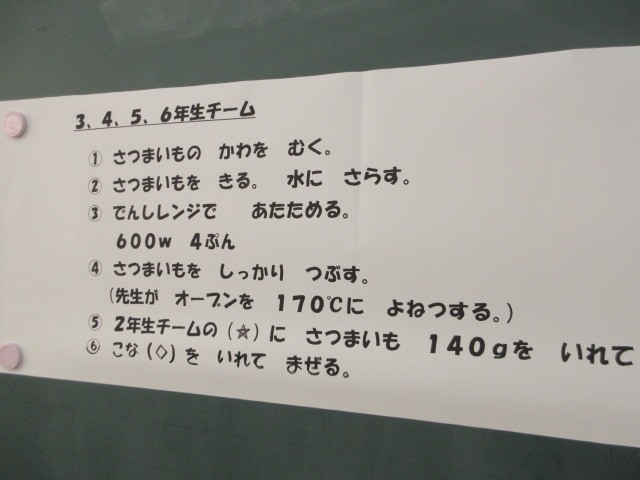 3、4、5、6年生チーム
① さつまいもの かわを むく。
② さつまいもを きる。 水に さらす。
③ でんしレンジで あたためる。
600w 4ぷん
④ さつまいもを しっかり つぶす。
(先生が オーブンを 170℃に よねつする。)
⑤ 2年生チームの(☆)に さつまいも 140gを いれて
⑥ こな(◇)を いれて まぜる。